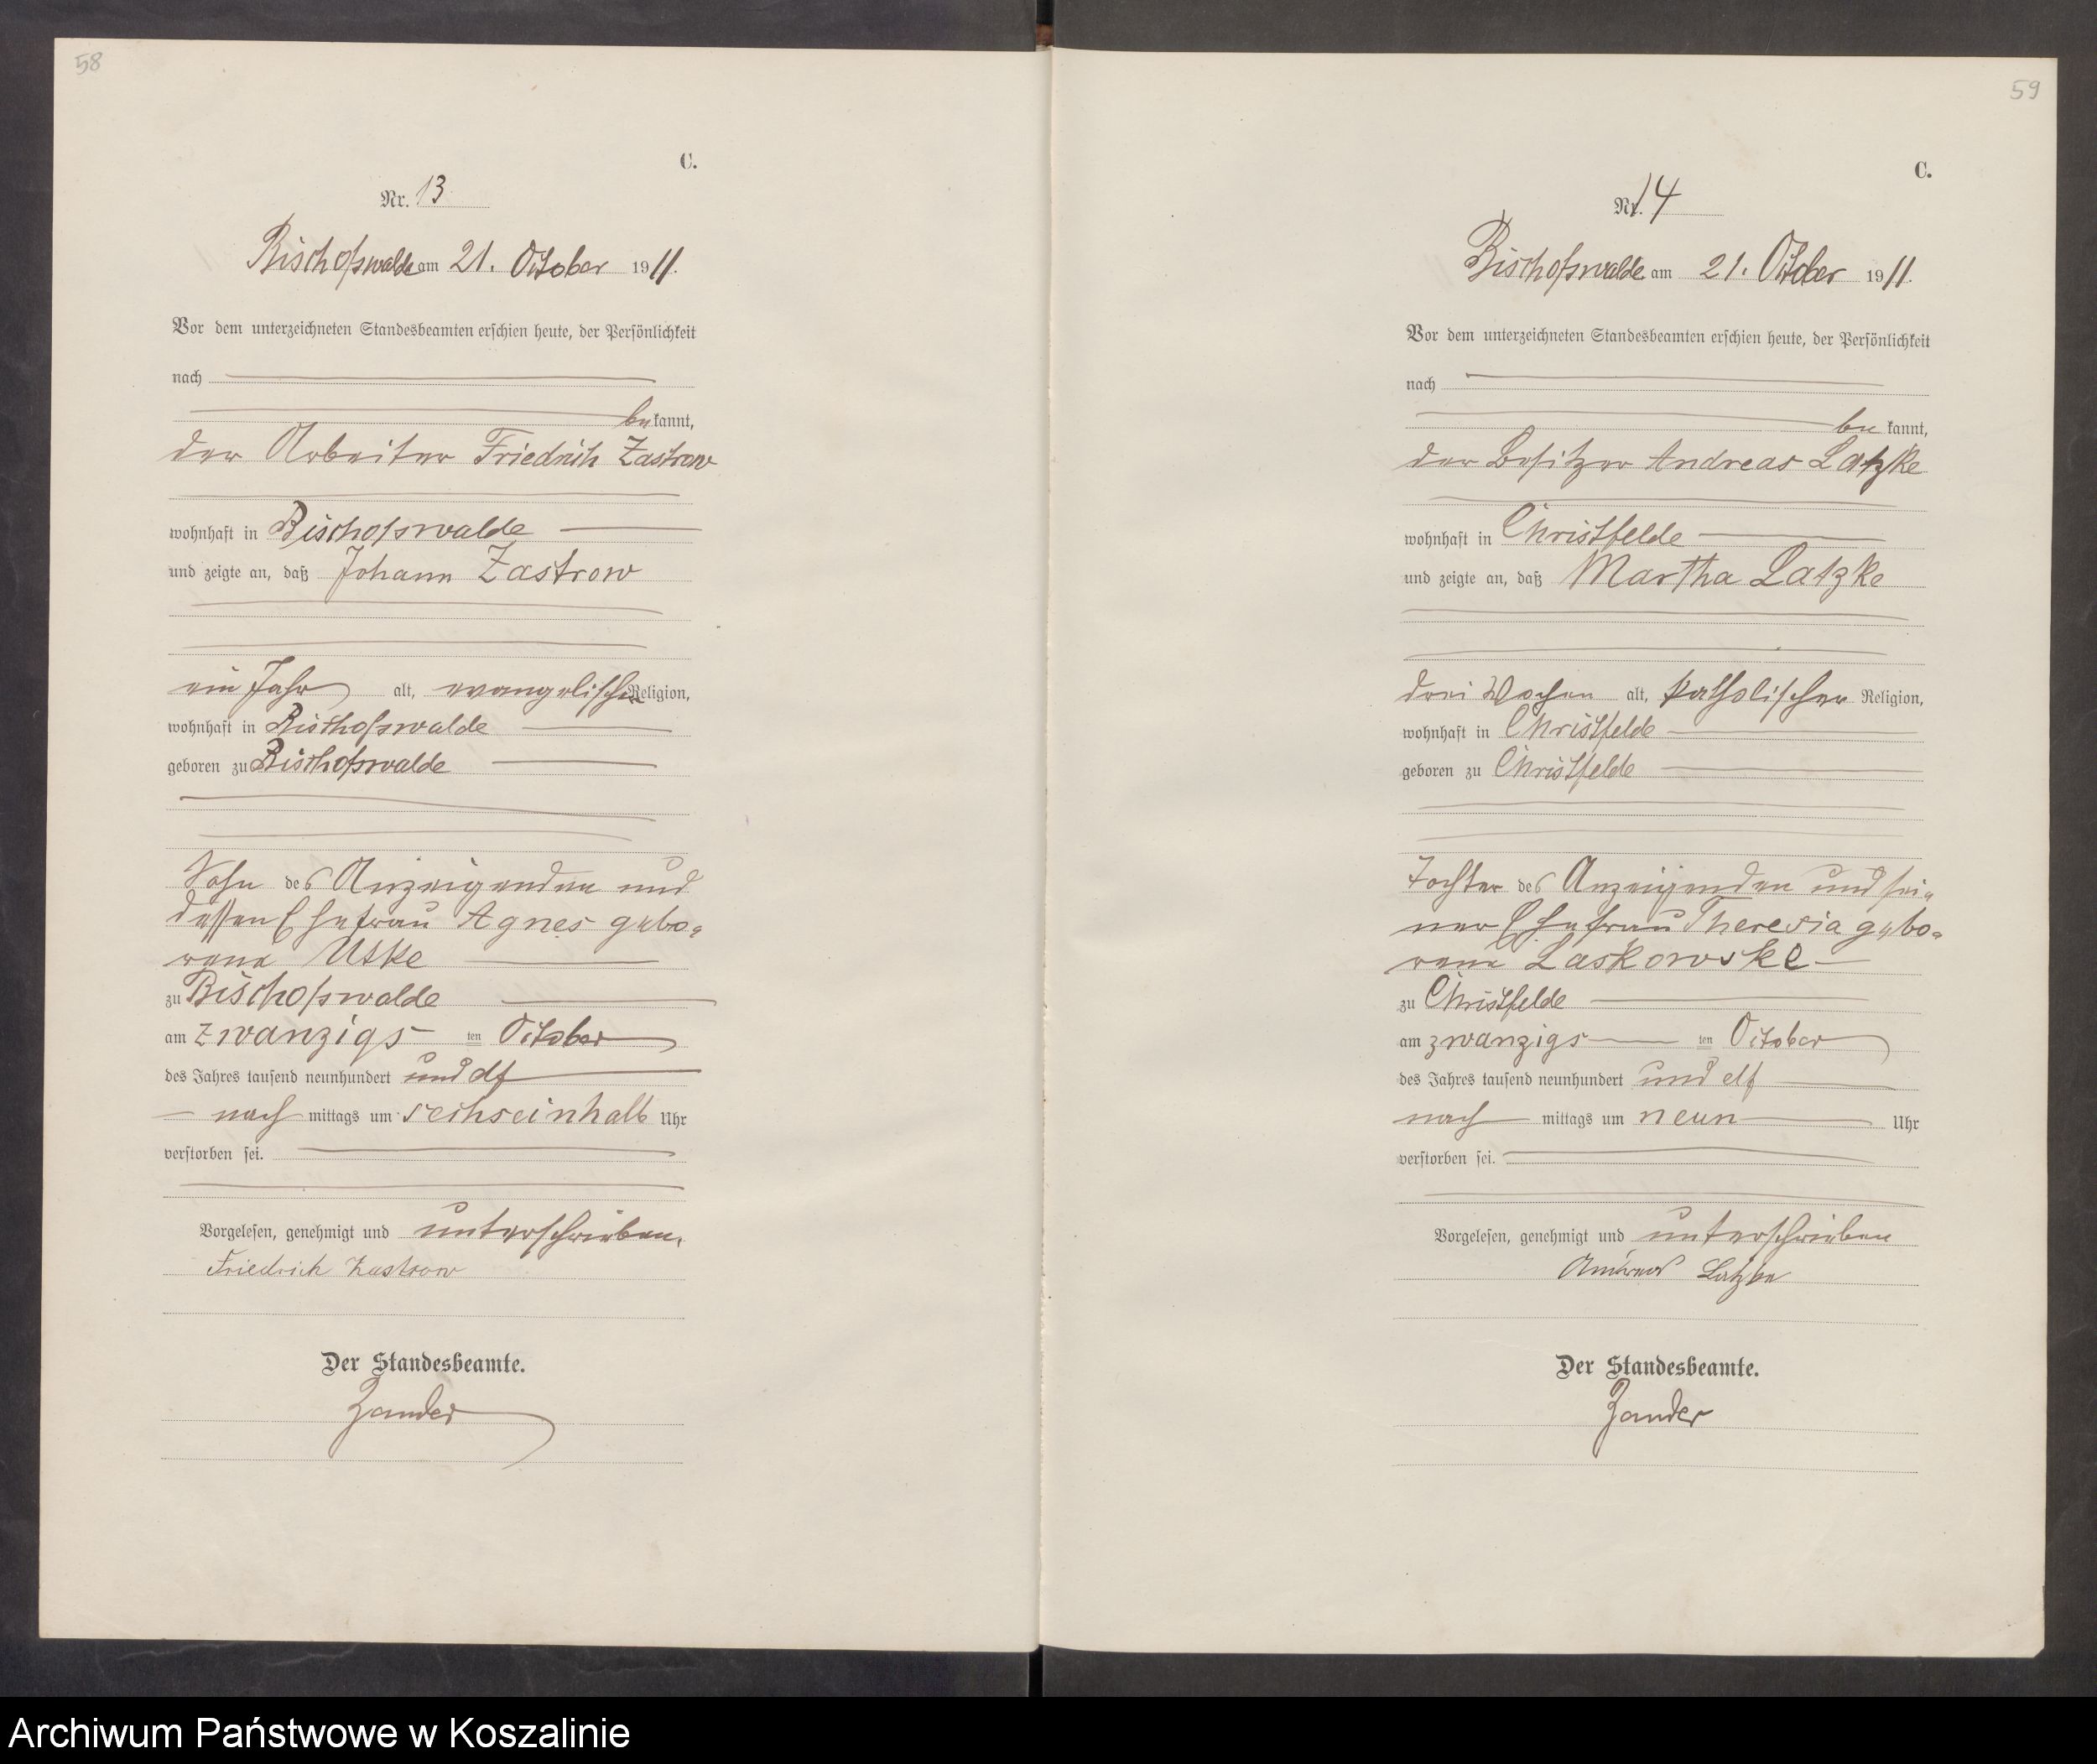 58
C.
Nr. 13
Bischofswalde am 21. October 1911.
Vor dem unterzeichneten Standesbeamten erschien heute, der Persönlichkeit
nach
bekannt,
der Arbeiter Friedrich Zastrow
wohnhaft in Bischofswalde
und zeigte an, daß Johann Zastrow
ein Jahr alt, evangelischer Religion,
wohnhaft in Bischofswalde
geboren zu Bischofswalde
Sohn des Anzeigenden und
dessen Ehefrau Agnes gebo-
rene Uske
zu Bischofswalde
am zwanzigs ten October
des Jahres tausend neunhundert und elf
nach mittags um sechseinhalb Uhr
verstorben sei.
Vorgelesen, genehmigt und unterschrieben.
Friedrich Zastrow
Der Standesbeamte.
Zander
59
C.
Nr. 14
Bischofswalde am 21. October 1911.
Vor dem unterzeichneten Standesbeamten erschien heute, der Persönlichkeit
nach
be kannt,
der Besitzer Andreas Latzke
wohnhaft in Christfelde
und zeigte an, daß Martha Latzke
drei Wochen alt, katholischer Religion,
wohnhaft in Christfelde
geboren zu Christfelde
Tochter des Anzeigenden und sei-
ner Ehefrau Theresia gebo-
rene Laskowske
zu Christfelde
am zwanzigs ten October
des Jahres tausend neunhundert und elf
nach mittags um neun Uhr
verstorben sei.
Vorgelesen, genehmigt und unterschrieben
Andreas Latzke
Der Standesbeamte.
Zander
Archiwum Państwowe w Koszalinie